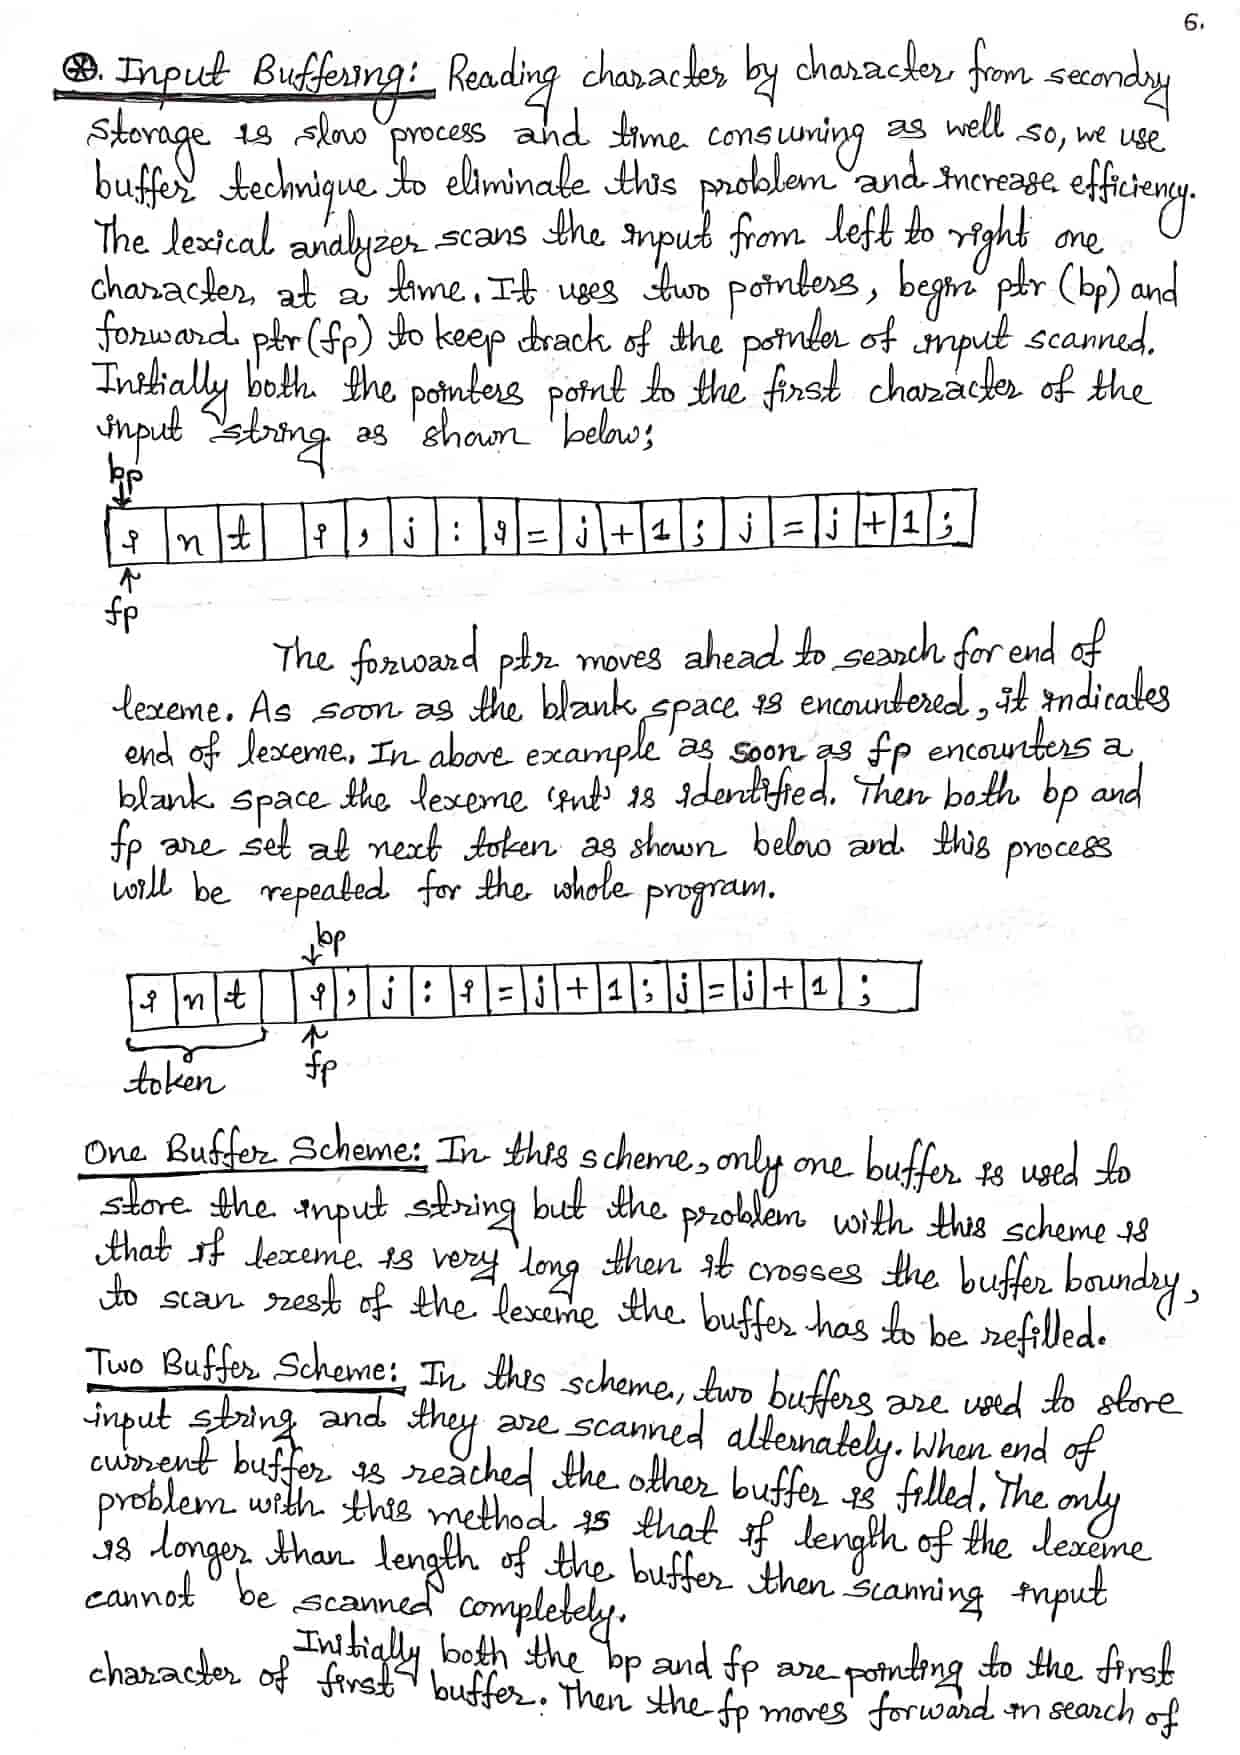 6.
⊛. Input Buffering: Reading character by character from secondry
storage is slow process and time consuming as well so, we use
buffer technique to eliminate this problem and increase efficiency.
The lexical analyzer scans the input from left to right one
character at a time. It uses two pointers, begin ptr (bp) and
forward ptr (fp) to keep track of the pointer of input scanned.
Initially both the pointers point to the first character of the
input string as shown below;
bp
i n t i , j : i = j + 1 ; j = j + 1 ;
fp
The forward ptr moves ahead to search for end of
lexeme. As soon as the blank space is encountered, it indicates
end of lexeme. In above example as soon as fp encounters a
blank space the lexeme 'int' is identified. Then both bp and
fp are set at next token as shown below and this process
will be repeated for the whole program.
bp
i n t i , j : i = j + 1 ; j = j + 1 ;
token fp
One Buffer Scheme: In this scheme, only one buffer is used to
store the input string but the problem with this scheme is
that if lexeme is very long then it crosses the buffer boundry,
to scan rest of the lexeme the buffer has to be refilled.
Two Buffer Scheme: In this scheme, two buffers are used to store
input string and they are scanned alternately. When end of
current buffer is reached the other buffer is filled. The only
problem with this method is that if length of the lexeme
is longer than length of the buffer then scanning input
cannot be scanned completely.
Initially both the bp and fp are pointing to the first
character of first buffer. Then the fp moves forward in search of